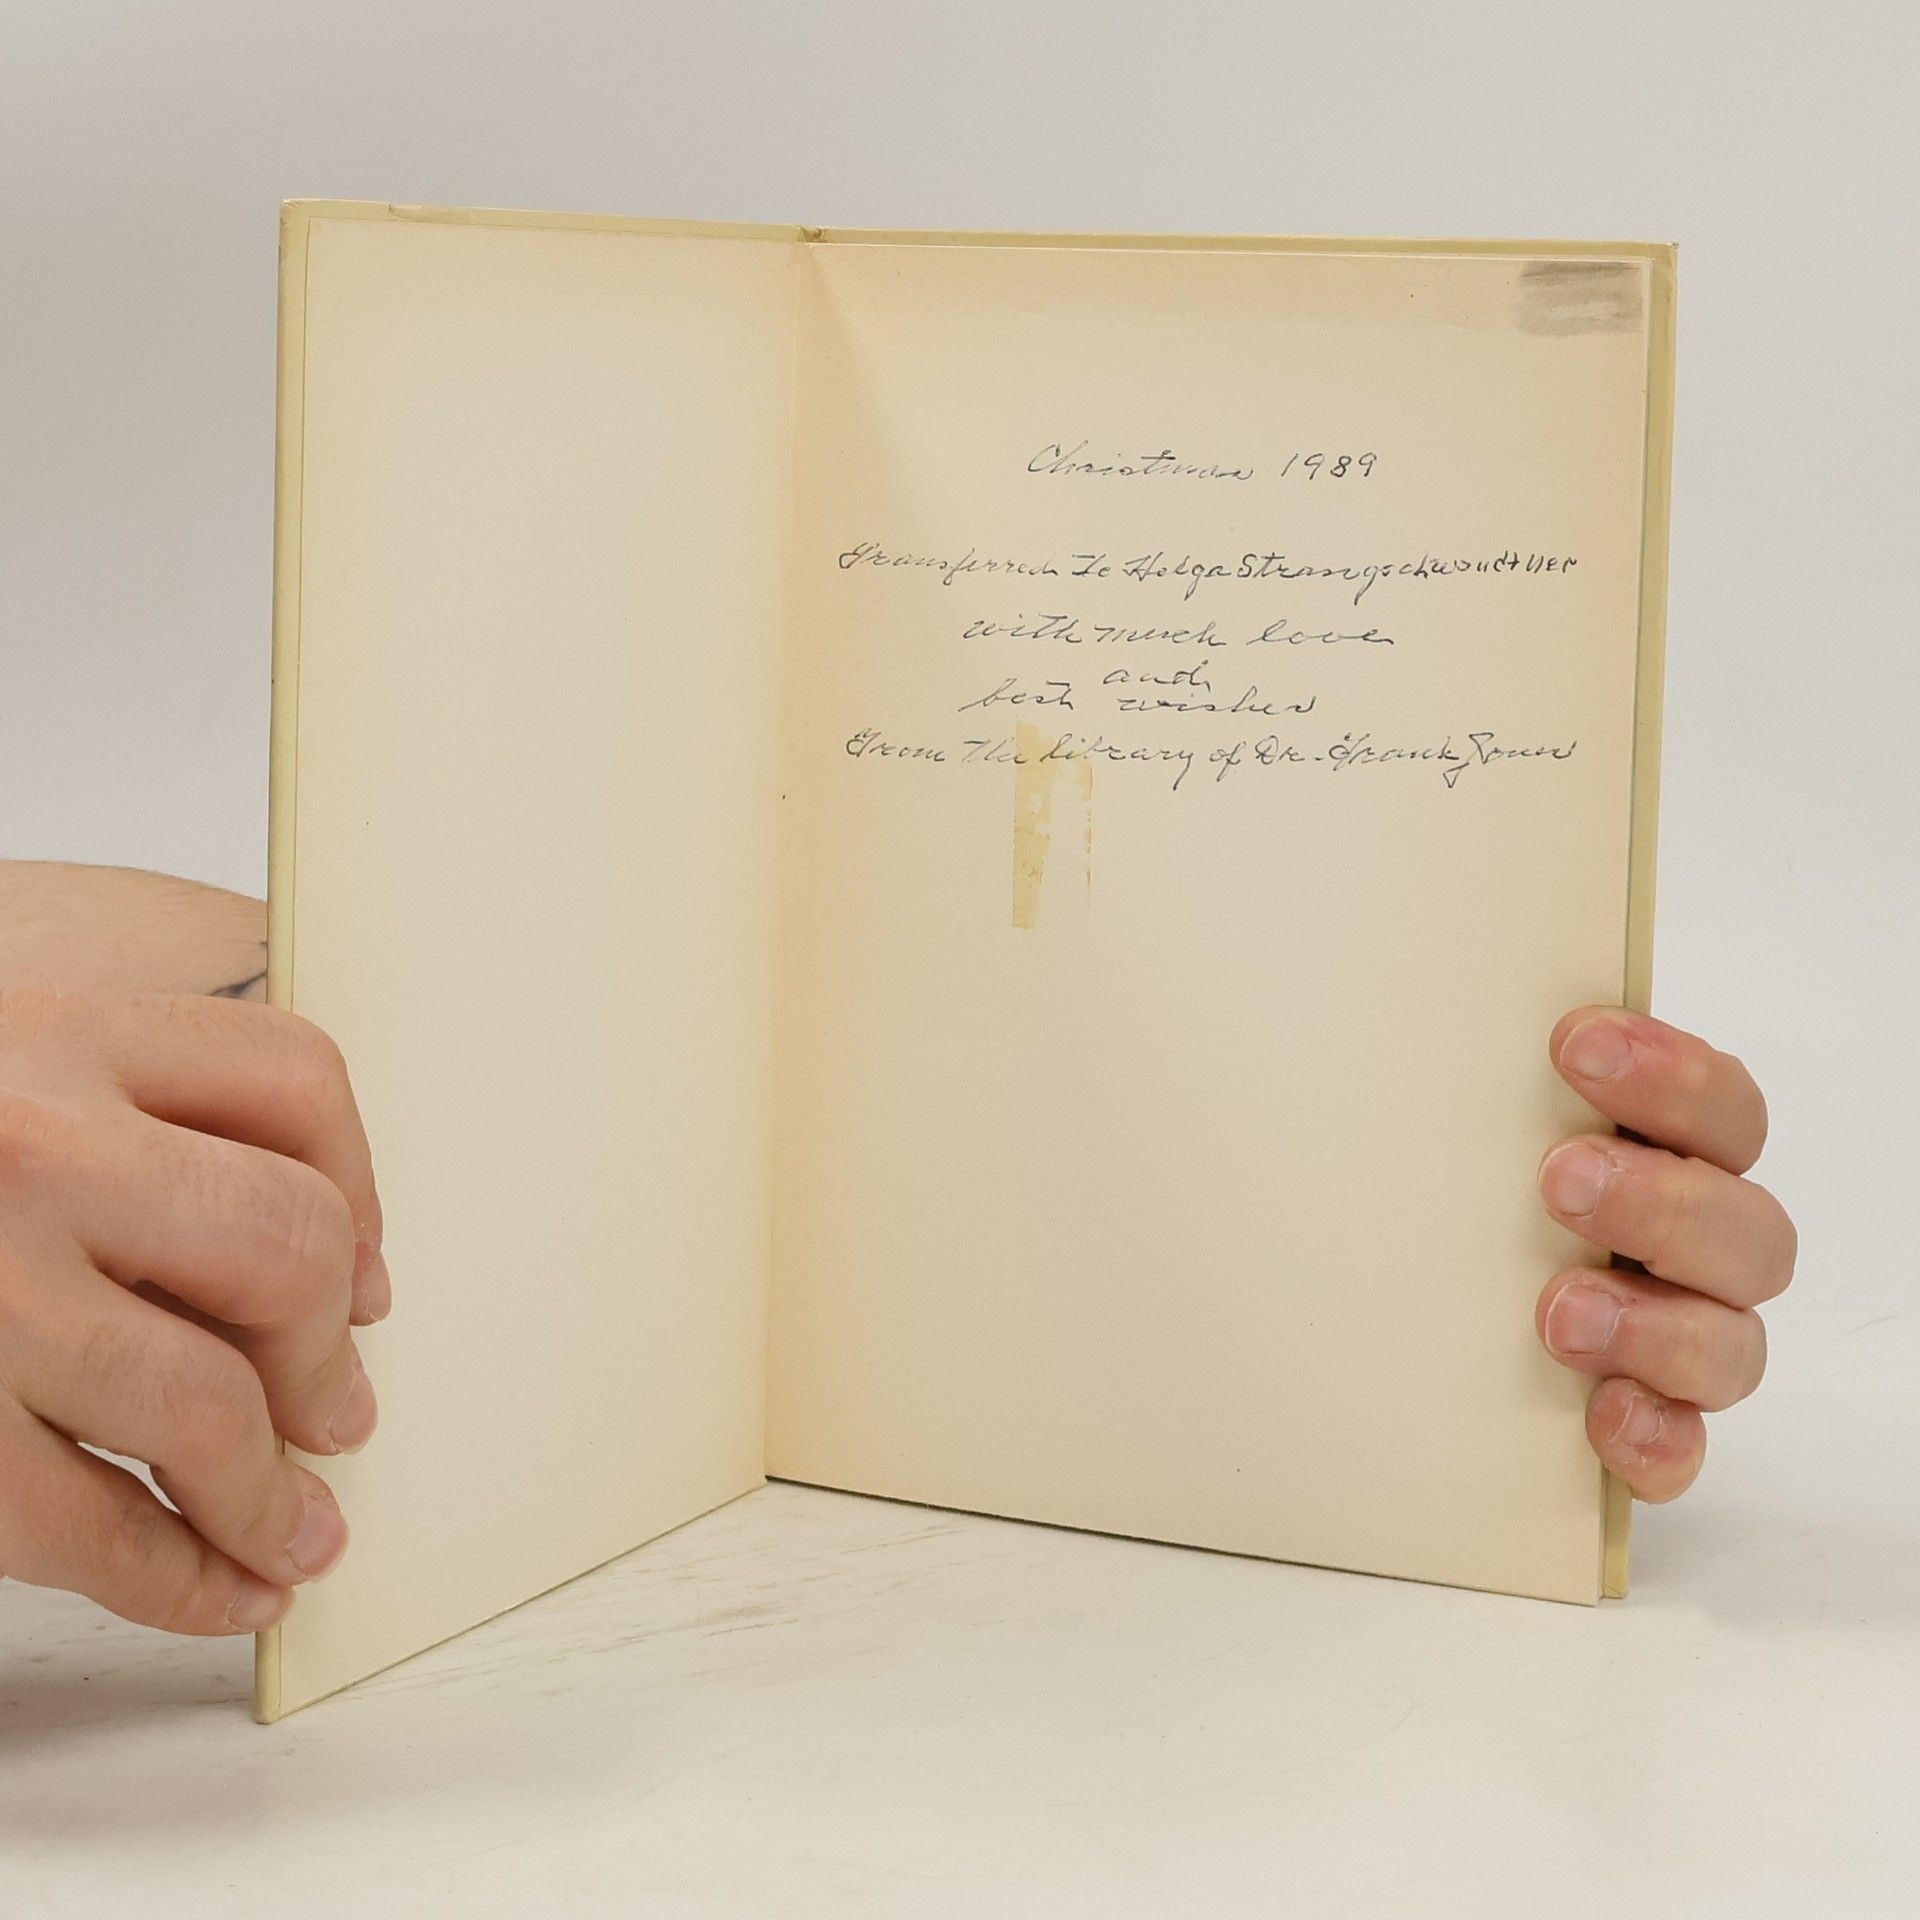 Christmas 1989
Transferred To Helga Strangschwandtner
with much love
and
best wishes
From The library of Dr. Frank Jones